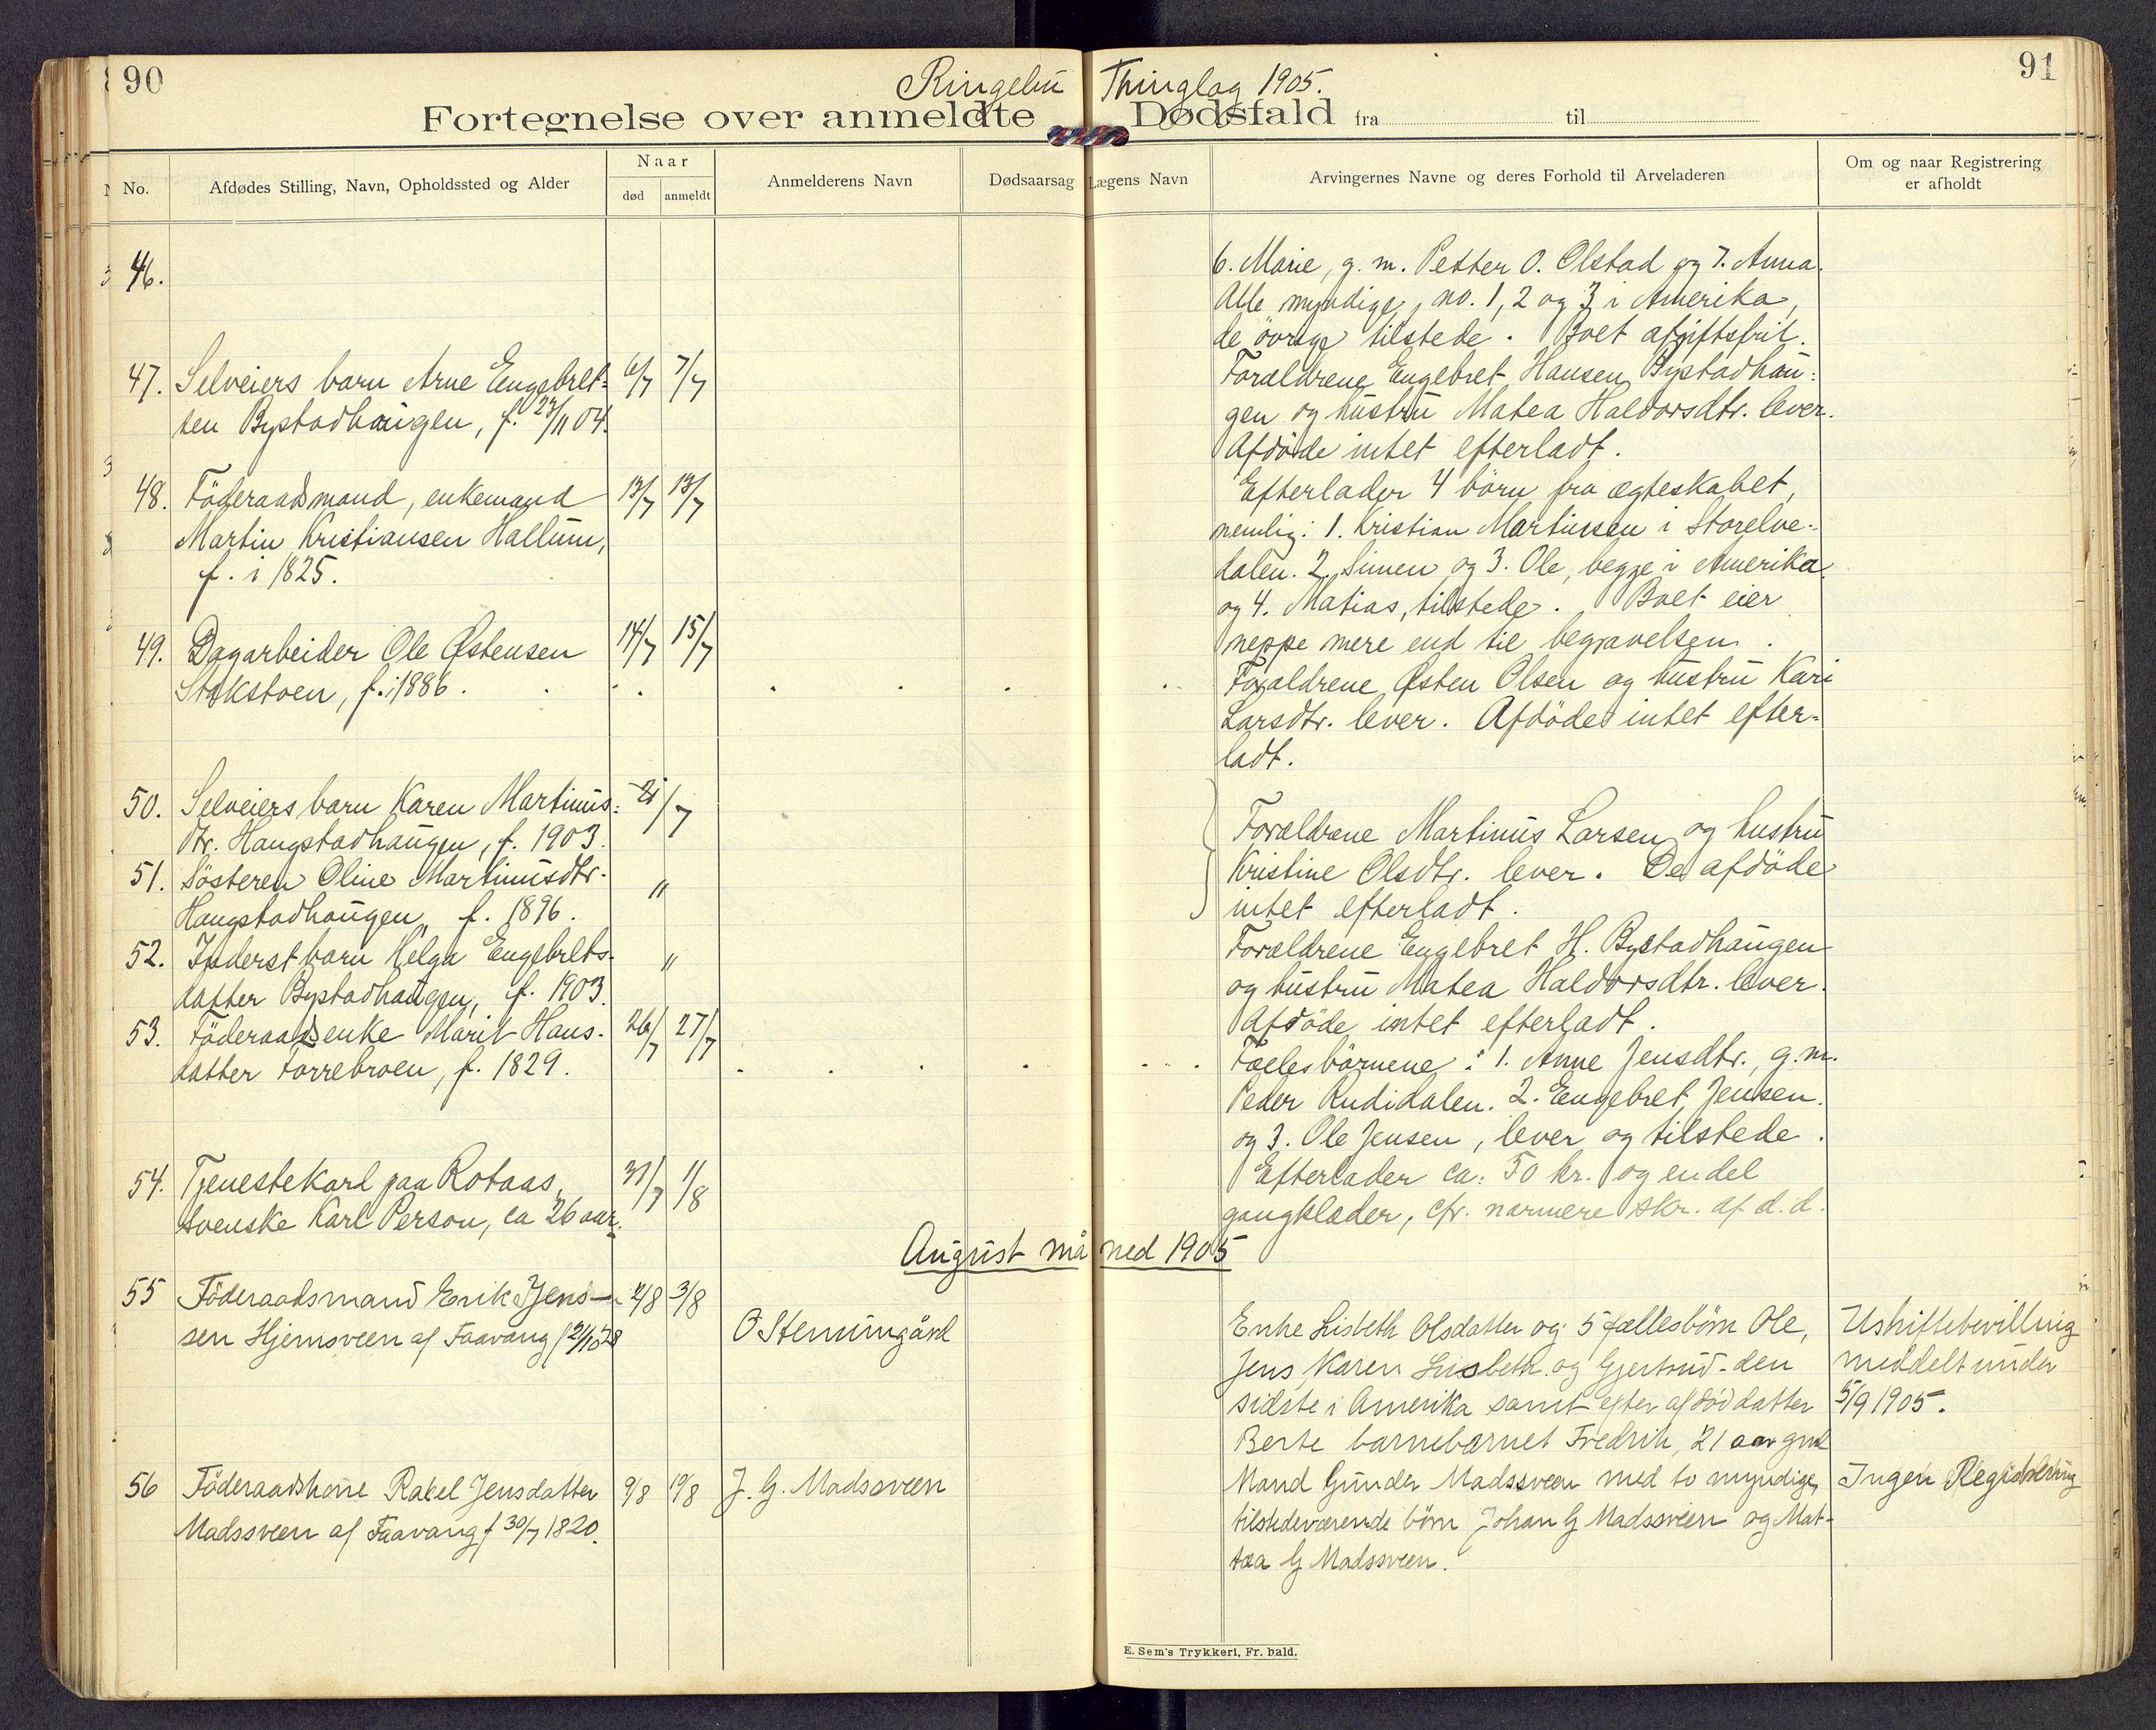 90
91
Ringebu Thinglag 1905.
Fortegnelse over anmeldte Dødsfald fra til
No.
Afdødes Stilling, Navn, Opholdssted og Alder
Naar
død
anmeldt
Anmelderens Navn
Dødsaarsag
Lægens Navn
Arvingernes Navne og deres Forhold til Arveladeren
Om og naar Registrering
er afholdt
46.
6. Marie, g. m. Petter O. Olstad og 7. Anna.
Alle myndige, no. 1, 2 og 3 i Amerika,
de øvrige tilstede. Boet afgiftsfrit.
47. Selveiers barn Arne Engebret-
sen Bystadhaugen, f. 23/11 04.
6/7 7/7
Forældrene Engebret Hansen Bystadhau-
gen og hustru Matea Haldorsdtr. lever.
Afdøde intet efterladt.
48. Føderaadsmand, enkemand
Martin Kristiansen Hallum,
f. i 1825.
13/7 13/7
Efterlader 4 børn fra ægteskabet,
nemlig: 1. Kristian Martinsen i Storelve-
dalen. 2. Simen og 3. Ole, begge i Amerika
og 4. Matias, tilstede. Boet eier
neppe mere end til begravelsen.
49. Dagarbeider Ole Østensen
Stokstoen, f. i 1886.
14/7 15/7
Forældrene Østen Olsen og hustru Kari
Larsdtr. lever. Afdøde intet efter-
ladt.
50. Selveiers barn Karen Martinus-
dtr. Haugstadhaugen, f. 1903.
21/7
51. Søsteren Oline Martinusdtr.
Haugstadhaugen, f. 1896.
"
Forældrene Martinus Larsen og hustru
Kristine Olsdtr. lever. De afdøde
intet efterladt.
52. Inderst barn Helga Engebrets-
datter Bystadhaugen, f. 1903.
"
Forældrene Engebret H. Bystadhaugen
og hustru Matea Haldorsdtr. lever.
Afdøde intet efterladt.
53. Føderaadsenke Marit Hans-
datter Forrebroen, f. 1829.
26/7 27/7
Fælesbørnene: 1. Anne Jensdtr., g. m.
Peder Rudidalen. 2. Engebret Jensen.
og 3. Ole Jensen, lever og tilstede.
54. Tjenestekarl paa Rotaas,
svenske Karl Person, ca 26 aar.
31/7 1/8
Efterlader ca. 50 kr. og endel
gangklæder, cfr. nærmere skr. af d. d.
August måned 1905
55 Føderaadsmand Erik Jens-
sen Hjemsveen af Faavang
2/8 3/8
O Stenumgård
Enke Lisbeth Olsdatter og 5 fællesbørn Ole,
Jens, Karen Lisbeth og Gjertrud - den
sidste i Amerika samt efter afdød datter
Berte barnebarnet Fredrik, 21 aar gml
Uskiftebevilling
meddelt under
5/9 1905.
56 Føderaadskone Rakel Jensdatter
Madssveen af Faavang f 30/7 1820.
9/8 10/8
J. G. Madssveen
Mand Gunder Madssveen med to myndige,
tilstedeværende børn Johan G Madssveen og Mat-
tea G Madssveen.
Ingen Registrering
E. Sem's Trykkeri, Fr. hald.